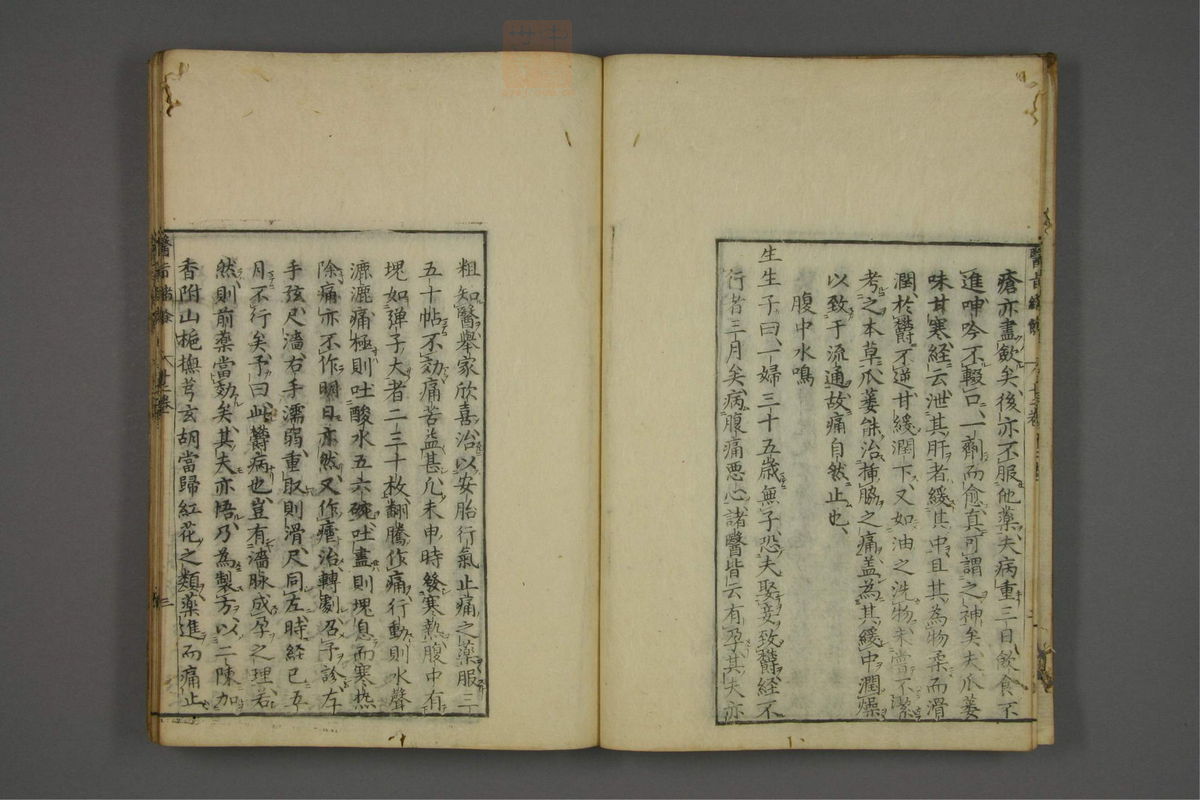 瘡亦盡斂矣後亦不服他藥夫病重三日飲食不
進呻吟不輟口一劑而愈真可謂之神矣夫瓜蔞
味甘寒経云泄其肝者緩其中且其為物柔而滑
潤於欝不逆甘緩潤下又如油之洗物未嘗不潔
考之本草瓜蔞能治揷脇之痛盖為其緩中潤燥
以致于流通故痛自然止也
腹中水鳴
生生子曰一婦三十五歳無子恐夫娶妾致欝経不
行者三月矣病腹痛悪心諸醫皆云有孕其夫亦
粗知醫舉家欣喜治以安胎行氣止痛之藥服三
五十帖不効痛苦益甚凢未申時發寒熱腹中有
塊如弾子大者二三十枚翻騰作痛行動則水聲
漉漉痛極則吐酸水五六碗吐盡則塊息而寒熱
除痛亦不作明日亦然又作瘧治轉劇召予診左
手弦尺濇右手濡弱重取則滑尺同左時経已五
月不行矣予曰此欝病也豈有濇脉成孕之理若
然則前藥當効矣其夫亦悟乃為製方以二陳加
香附山梔撫芎玄胡當歸紅花之類藥進而痛止